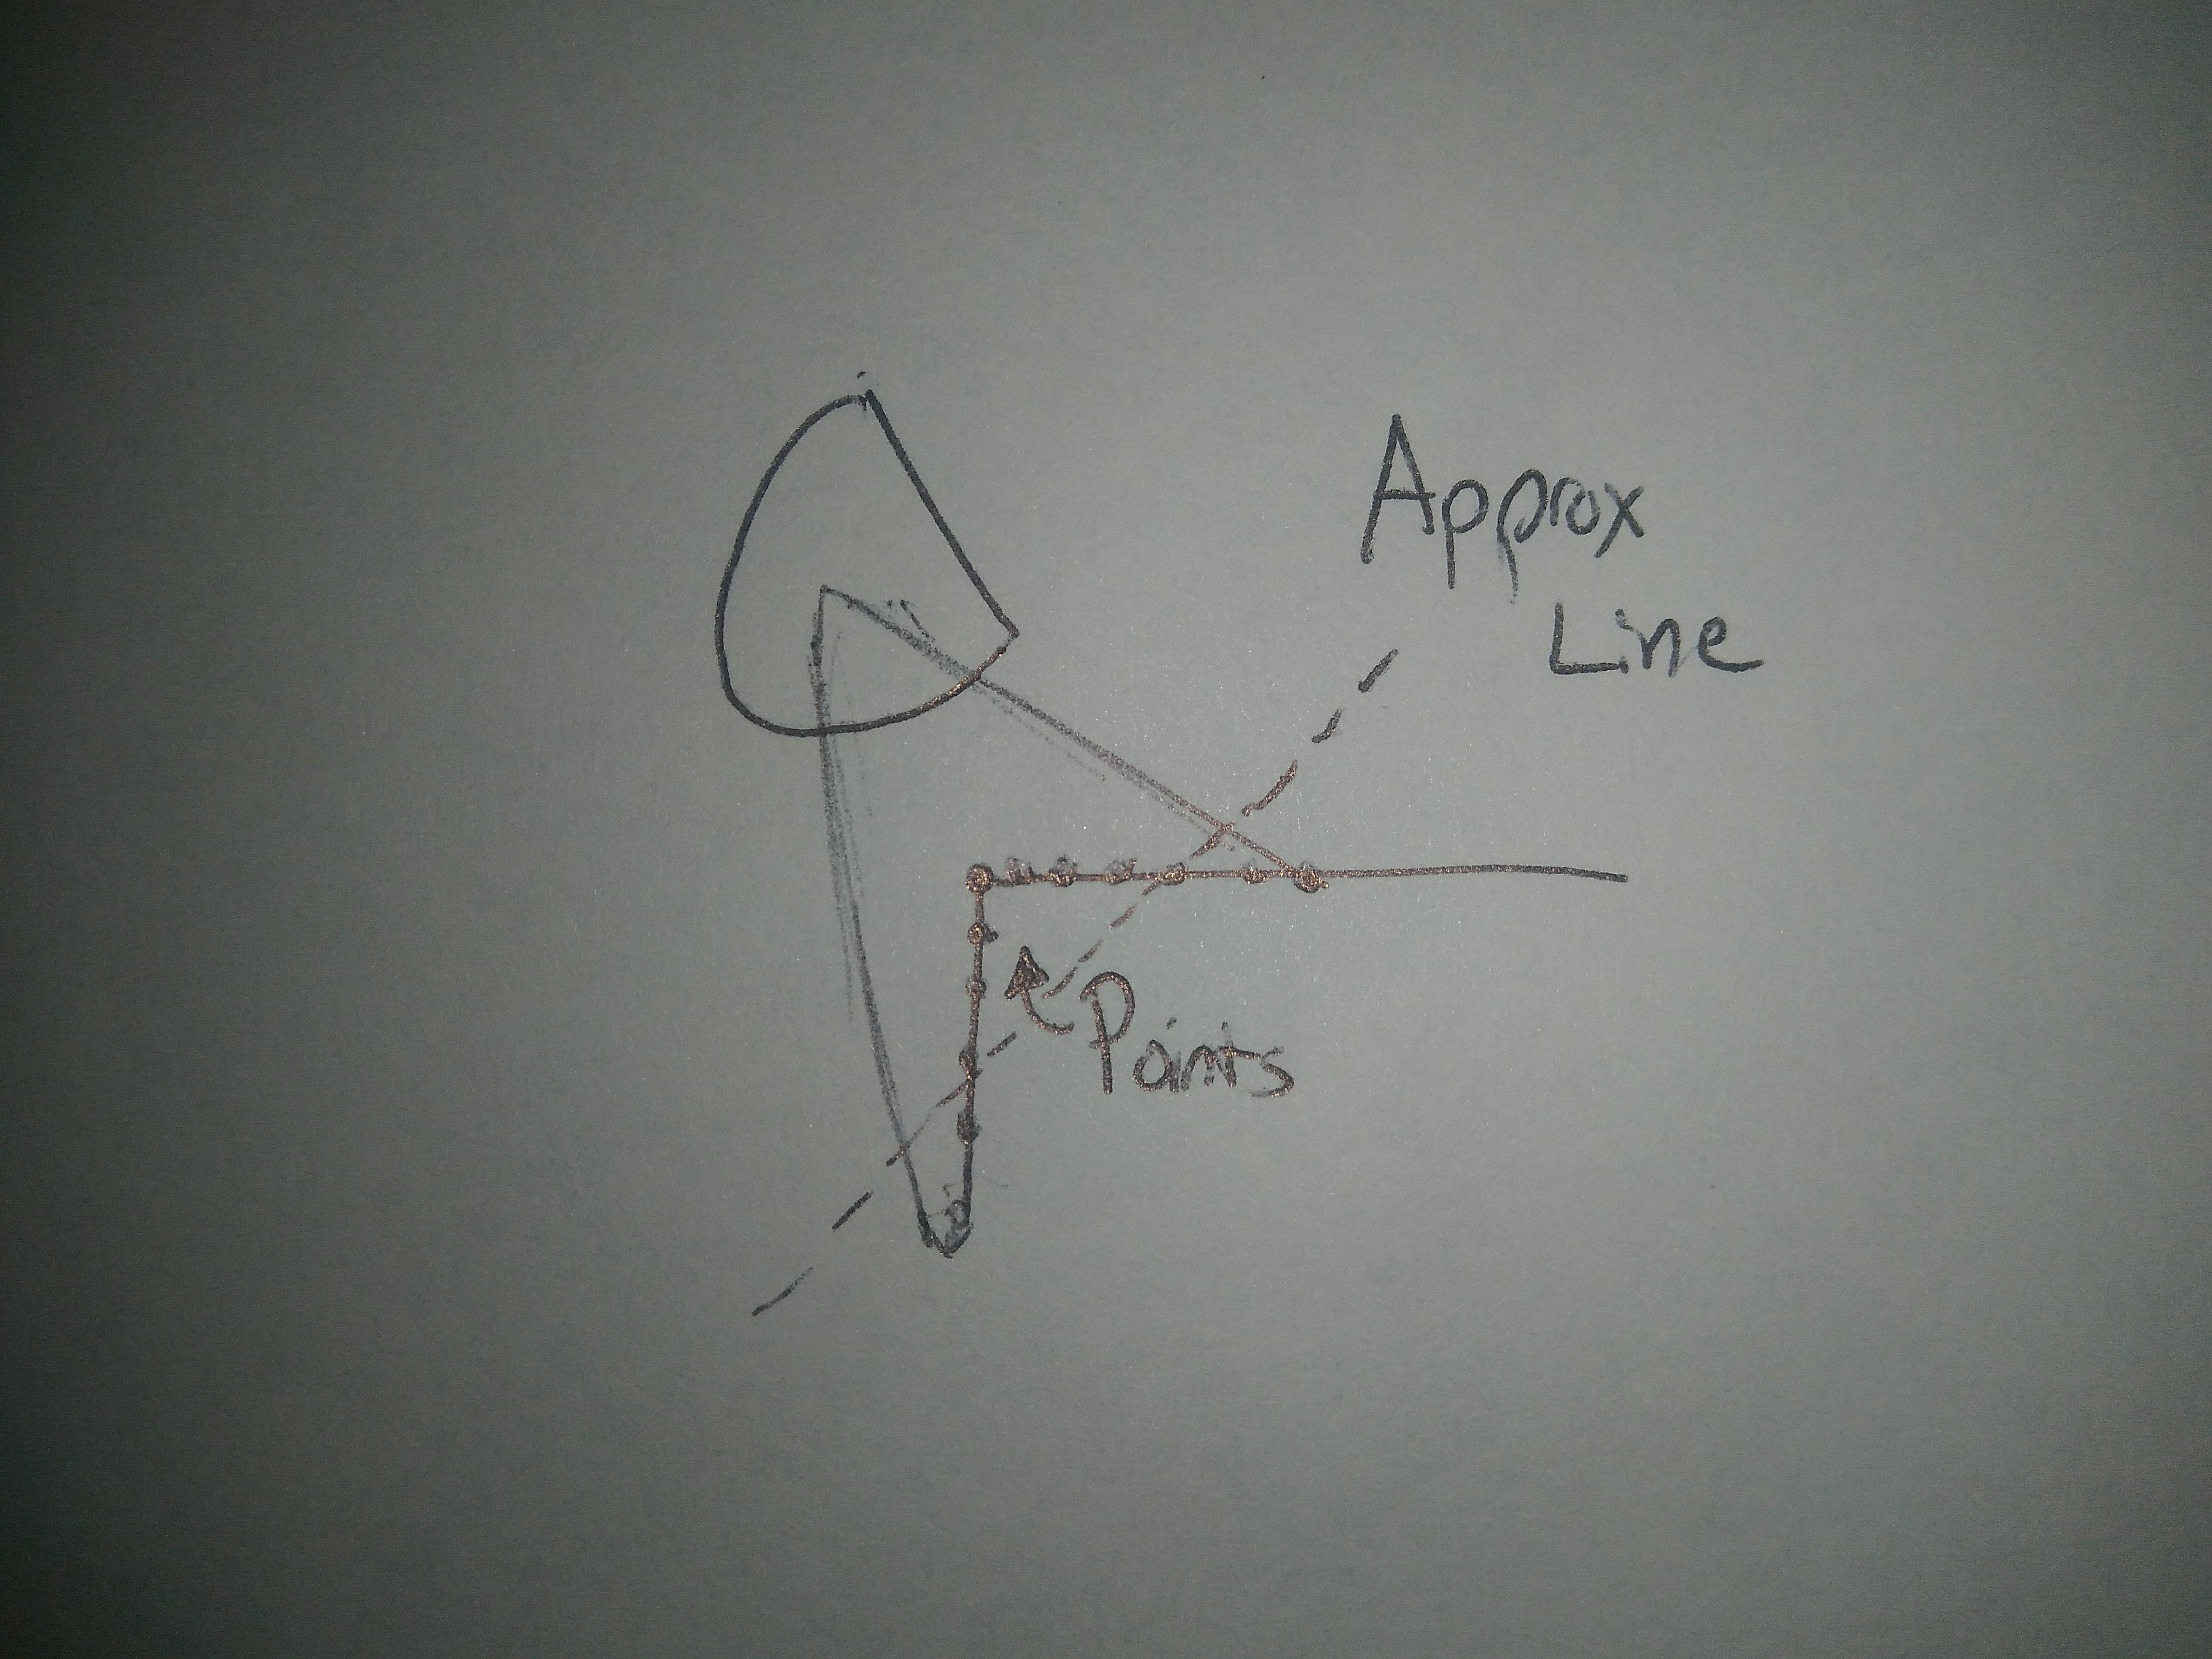 Approx
Line
Points